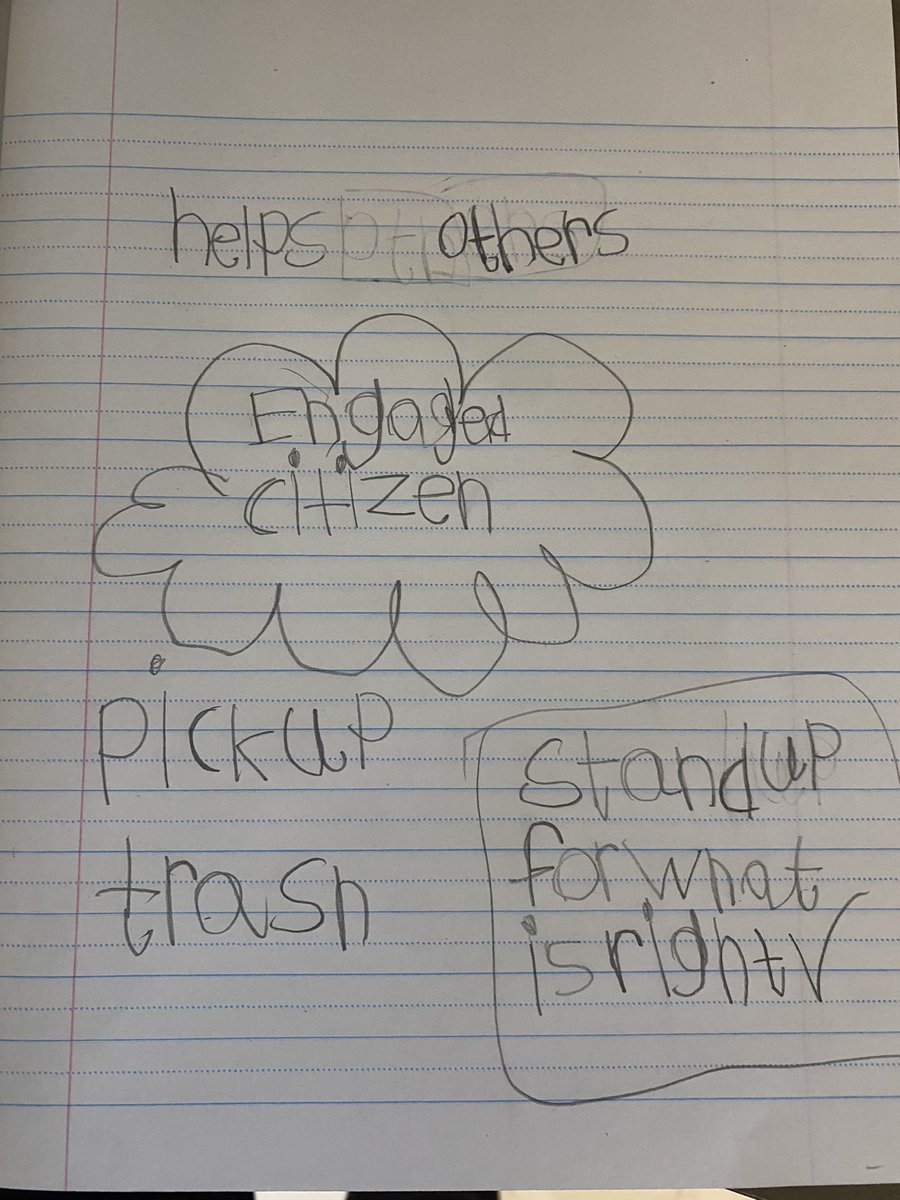 helps others
Engaged
citizen
pickup
trash
stand up
for what
is right✓